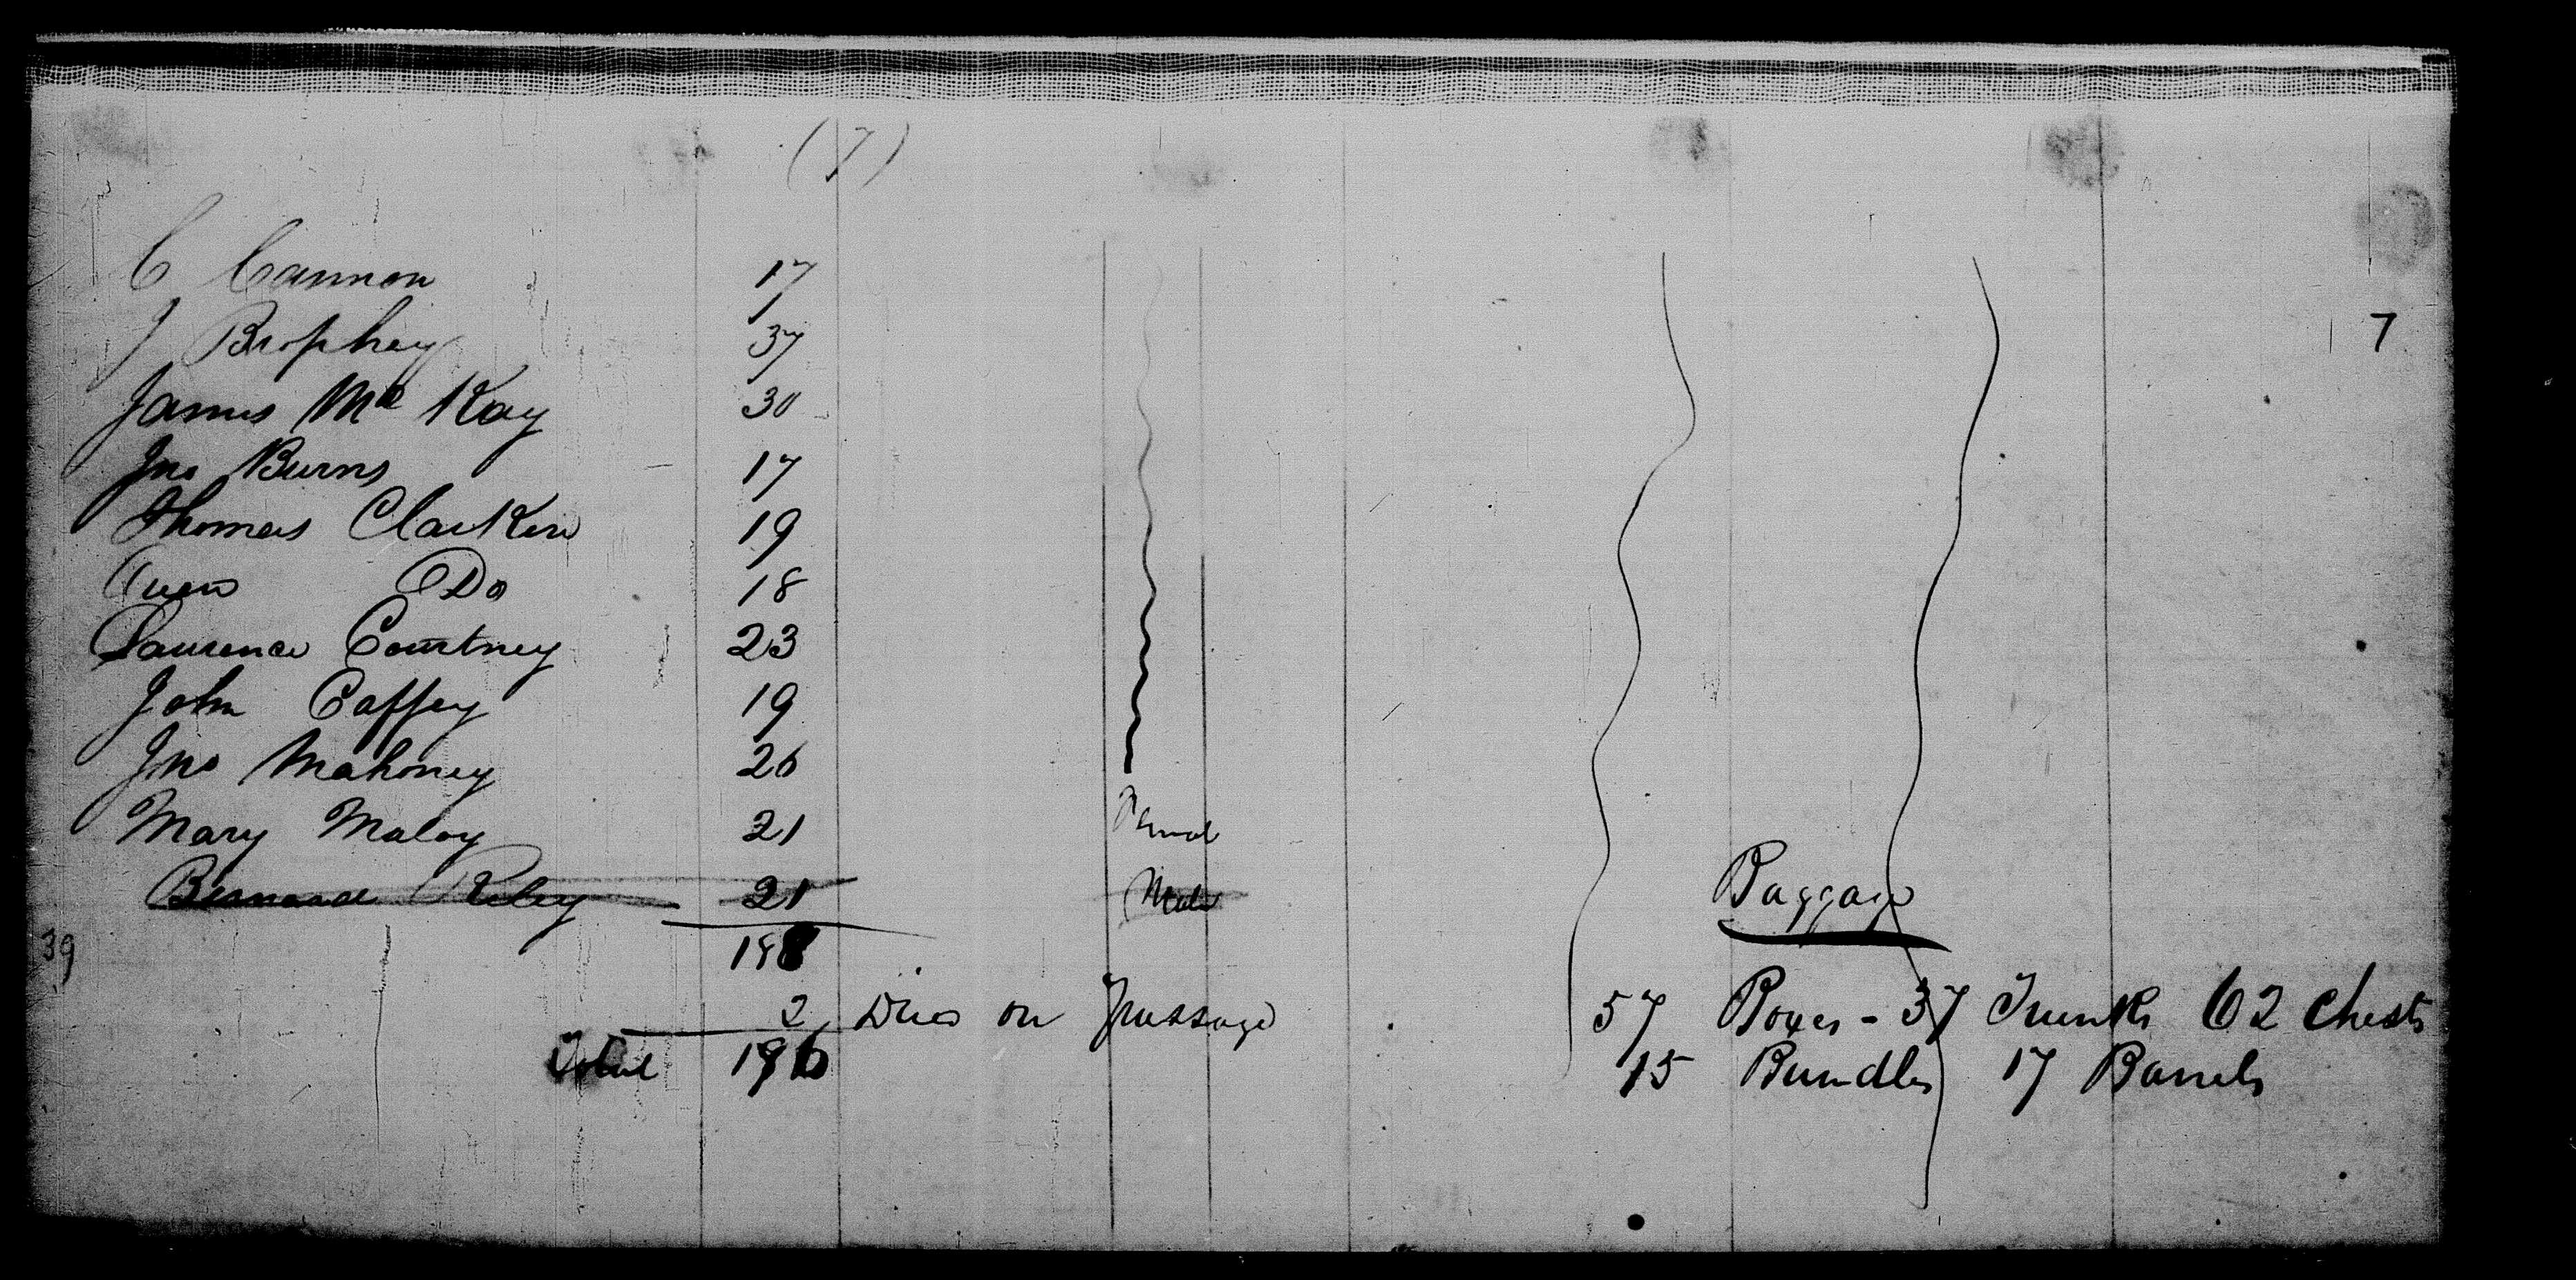 (7)
C Cannon 17
J Brophey 37 7
James Mc Kay 30
Jno Burns 17
Thomas Clarken 19
Owen Do 18
Laurence Courtney 23
John Caffey 19
Jno Mahoney 26
Mary Maloy 21 Female
Bernard Riley 21 Male Baggage
39 198
2 Died on passage 57 Boxes - 37 Trunks 62 Chests
Total 196 15 Bundles 17 Barrels